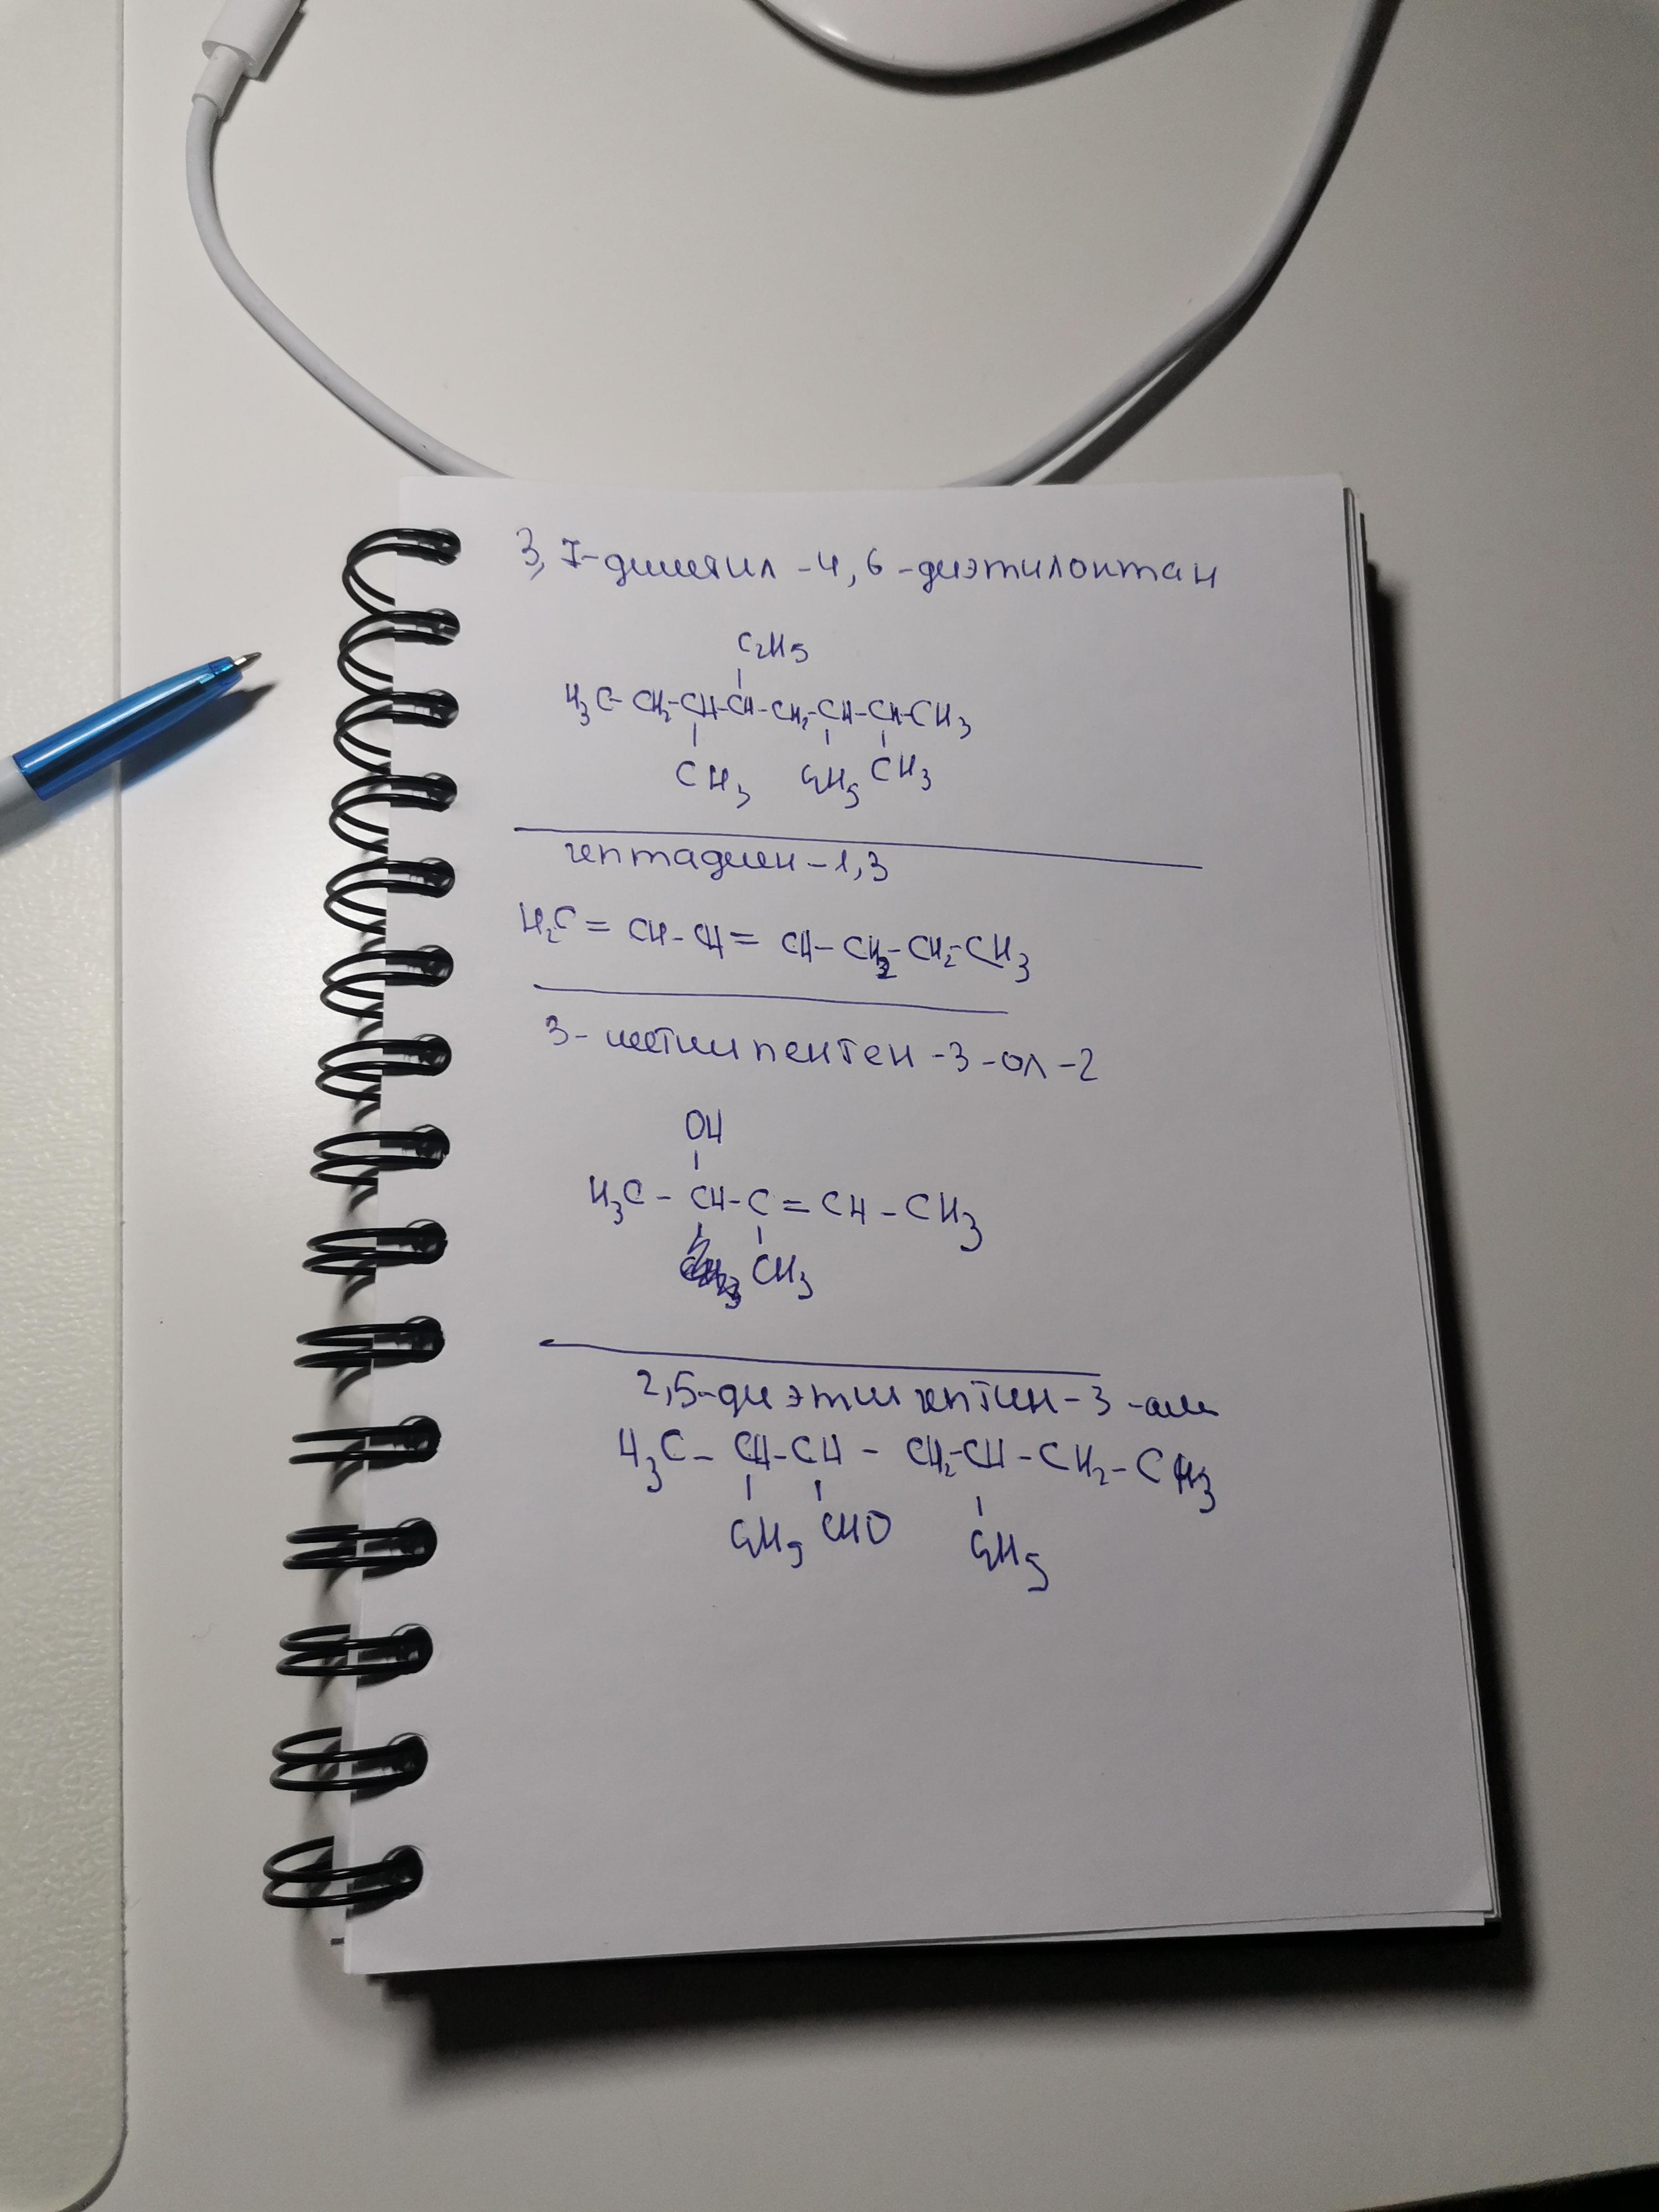 3,7-диметил-4,6-диэтилоктан
C2H5
H3C-CH2-CH-CH-CH2-CH-CH-CH3
CH3 C2H5 CH3
гептадиен-1,3
H2C=CH-CH=CH-CH2-CH2-CH3
3-метилпентен-3-ол-2
OH
H3C-CH-C=CH-CH3
CH3
2,5-диэтилгептин-3-аль
H3C-CH-CH-CH2-CH-CH2-CH3
C2H5 CHO C2H5